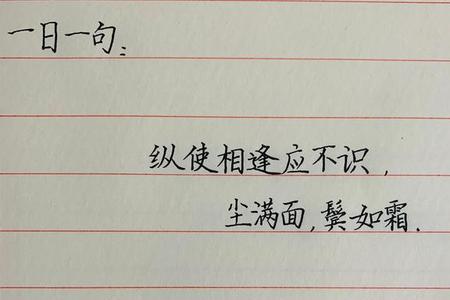 一日一句：
纵使相逢应不识，
尘满面，鬓如霜.